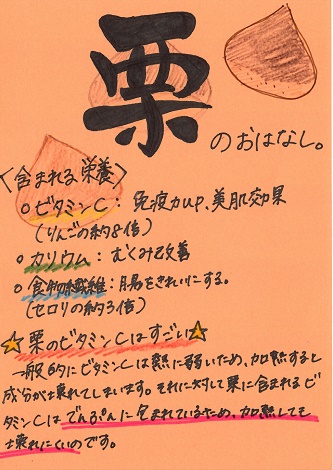 栗
のおはなし。
〈含まれる栄養〉
○ビタミンC：免疫力up、美肌効果
（りんごの約8倍）
○カリウム：むくみ改善
○食物繊維：腸をきれいにする。
（セロリの約3倍）
☆栗のビタミンCはすごい☆
一般的にビタミンCは熱に弱いため、加熱すると
成分が壊れてしまいます。それに対して栗に含まれるビ
タミンCはでんぷんに包まれているため、加熱しても
壊れにくいのです。